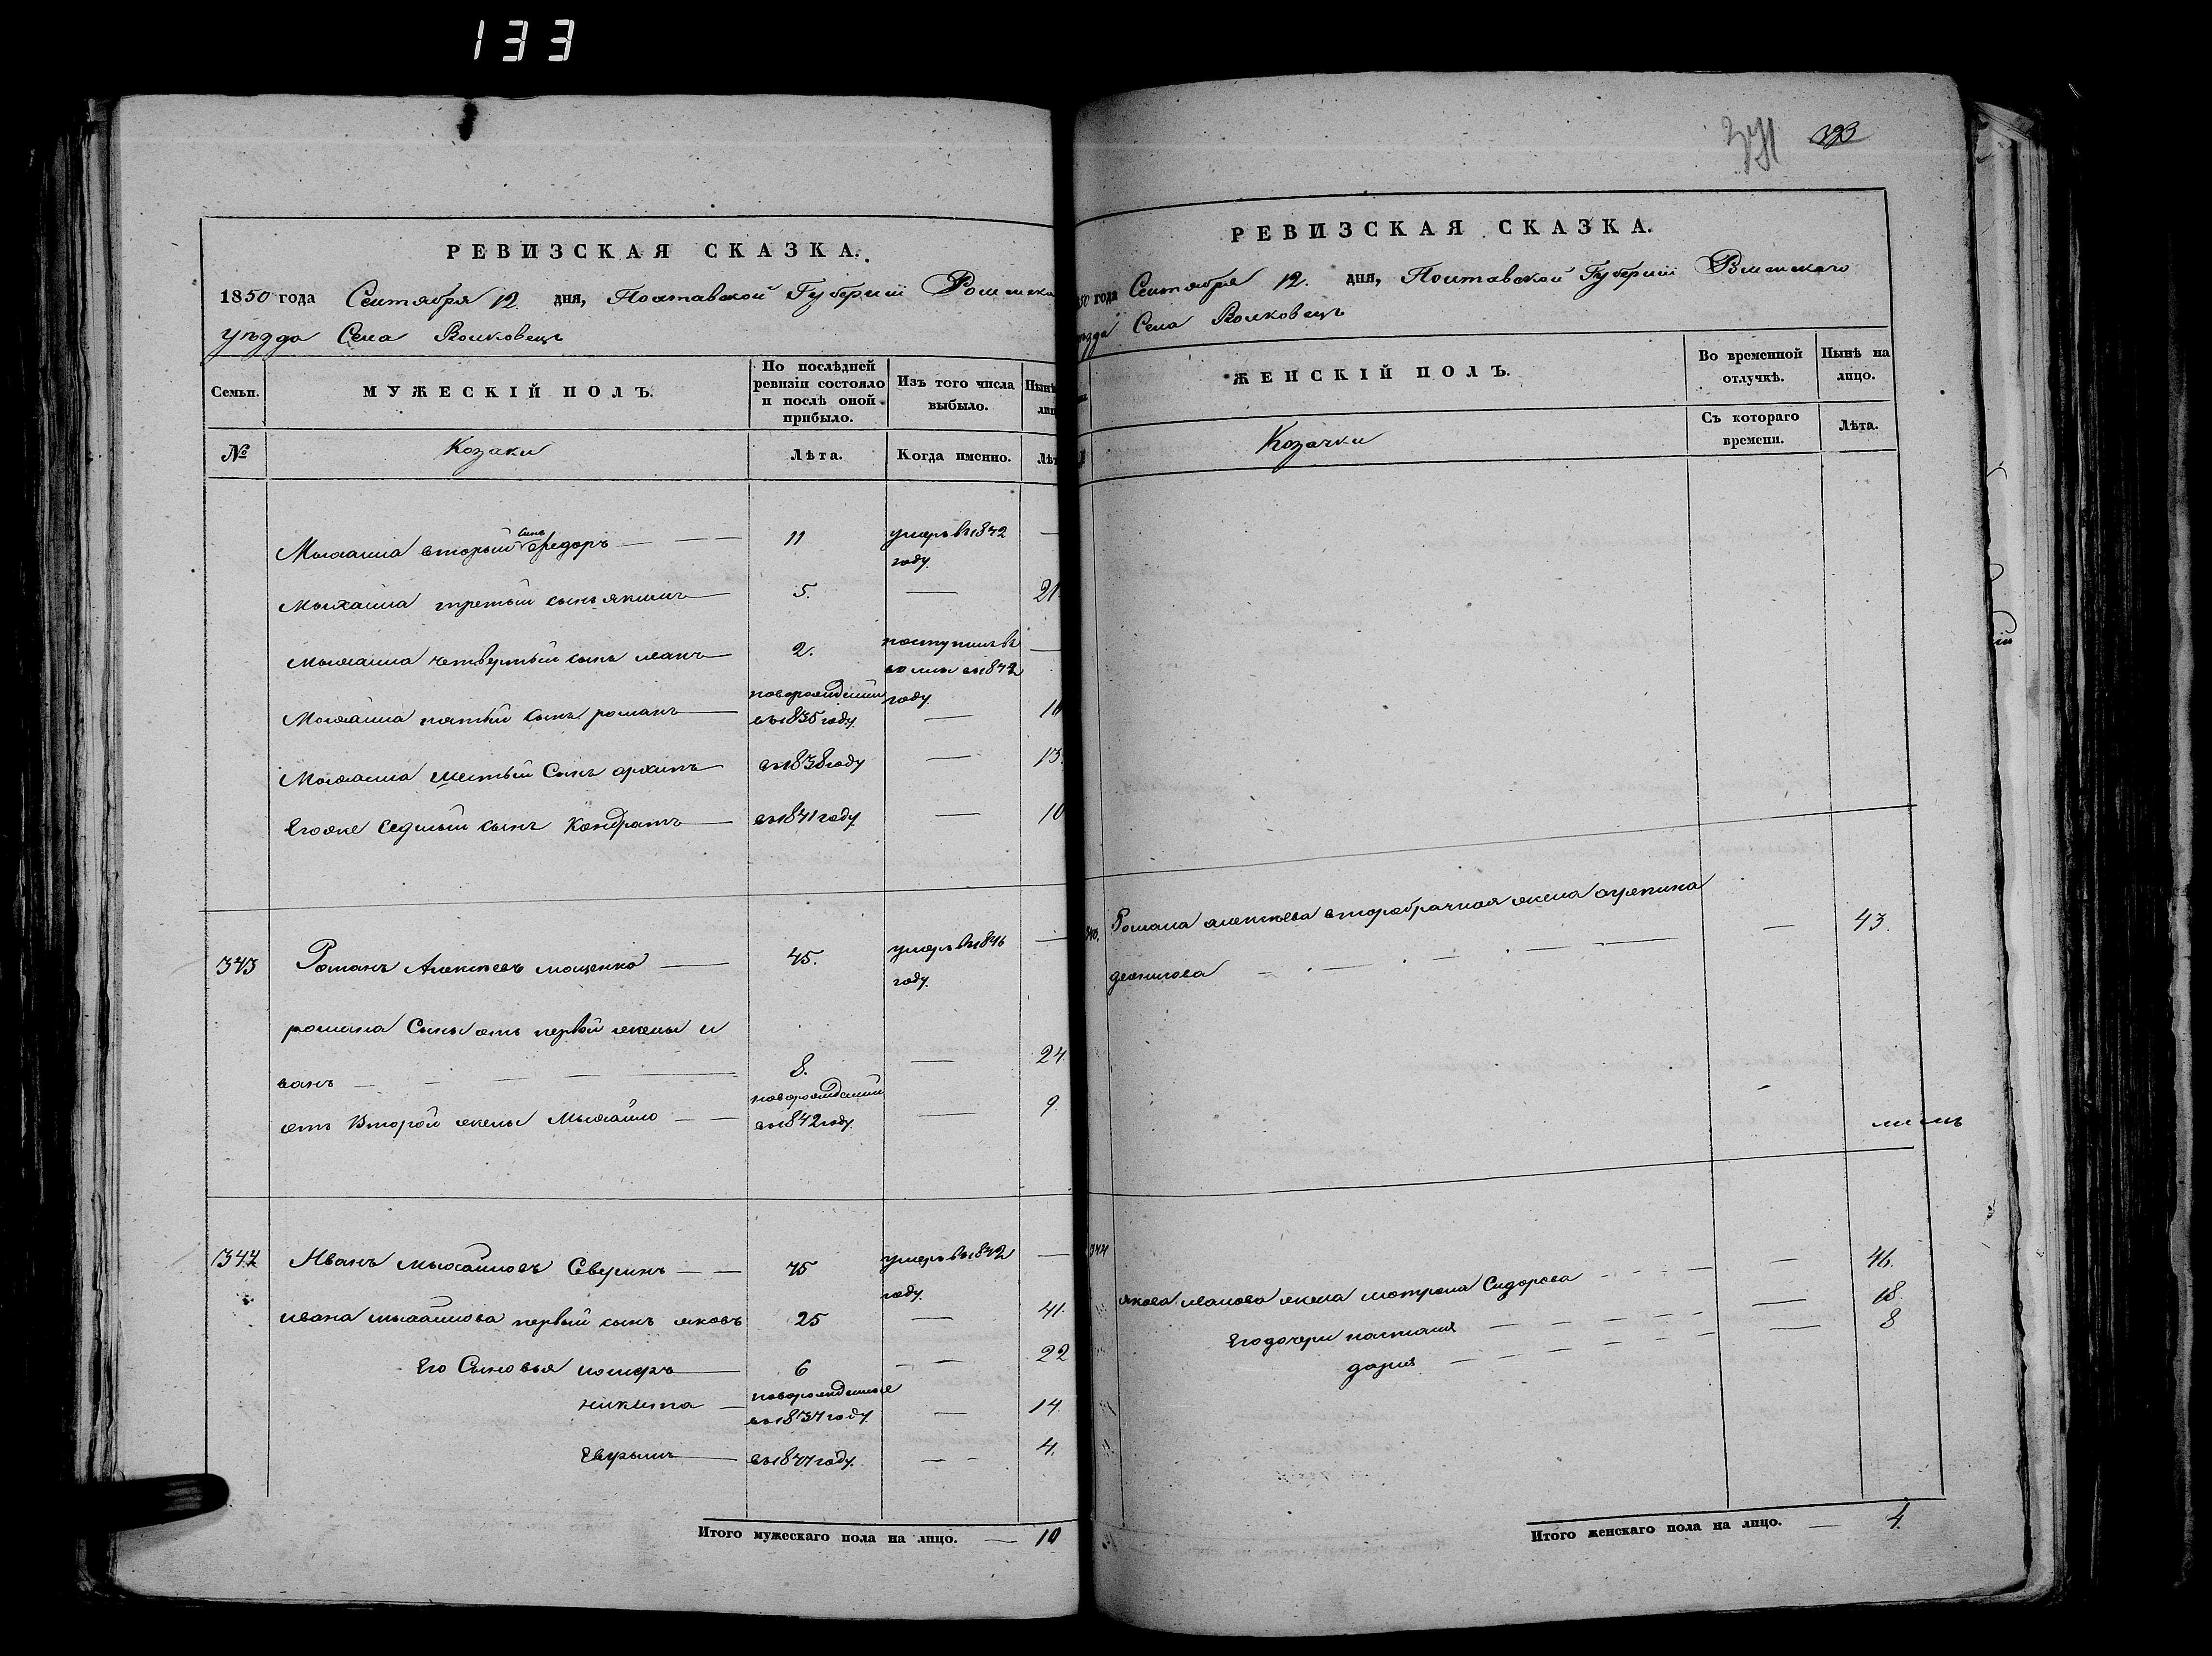 133
393
РЕВИЗСКАЯ СКАЗКА.
1850 года Сентября 12. дня, Полтавской Губернии Роменска
уѣзда Села Волковецъ
Семьи.
МУЖЕСКІЙ ПОЛЪ.
По послѣдней ревизіи состояло и послѣ оной прибыло.
Изъ того числа выбыло.
Нынѣ
№
Козаки
Лѣта.
Когда именно.
Лѣт
Мыхаила вторый сынъ Федоръ — 11 умеръ въ 1842 году. —
Мыхаила третый сынъ якимъ — 5. — 21
Мыхаила четвертый сынъ иванъ — 2. поступилъ въ 1842 году. —
Мыхаила пятый сынъ романъ — новорожденный въ 1835 году —
Мыхаила шестый Сынъ архипъ — въ 1838 году — 13
Егоже седмый сынъ Кондратъ — въ 1841 году — 10
343 Романъ Алексѣевъ мощенко — 45. умеръ въ 1846 году. —
романа Сынъ отъ первой жены и
ванъ — 8. — 24.
отъ Второй жены Мыхайло — новорожденный въ 1842 году. — 9.
344 Иванъ мыхаиловъ Северинъ — 75 умеръ въ 1842 году. —
ивана мыхаилова первый сынъ яковъ 25 — 41.
Его Сыновья — 6 — 22
никита — новорожденные въ 1837 году — 14.
въ 1847 году. — 4.
Итого мужескаго пола на лицо. — 10
РЕВИЗСКАЯ СКАЗКА.
50 года Сентября 12. дня, Полтавской Губернии Роменскаго
уѣзда Села Волковецъ
ЖЕНСКІЙ ПОЛЪ.
Во временной отлучкѣ.
Нынѣ на лицо.
Козачки
Съ котораго времени.
Лѣта.
Романа алексѣева второбрачная жена агрепина
— 43.
344 якова иванова жена мотрона Сидорова — 46.
Его дочери настасія — 18.
дарія — 8
Итого женскаго пола на лицо. — 4.